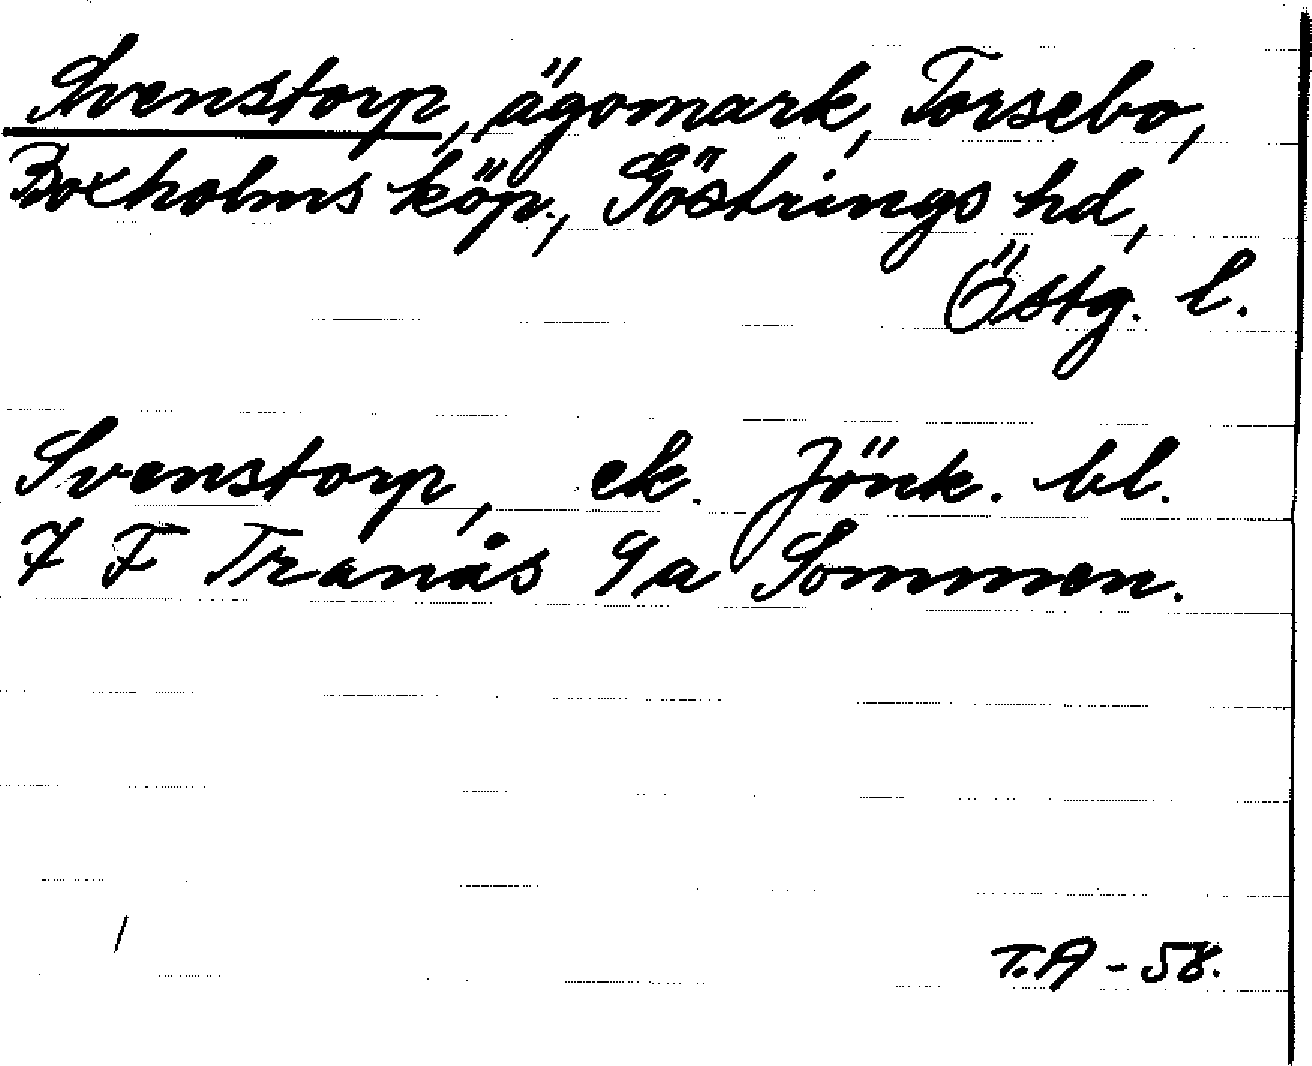 Svenstorp, ägomark, Torsebo,
Boxholms köp., Göstrings hd,
Östg. l.
Svenstorp, ek. Jönk. bl.
7 F Tranås 9/a Sommen.
T.A - 58.